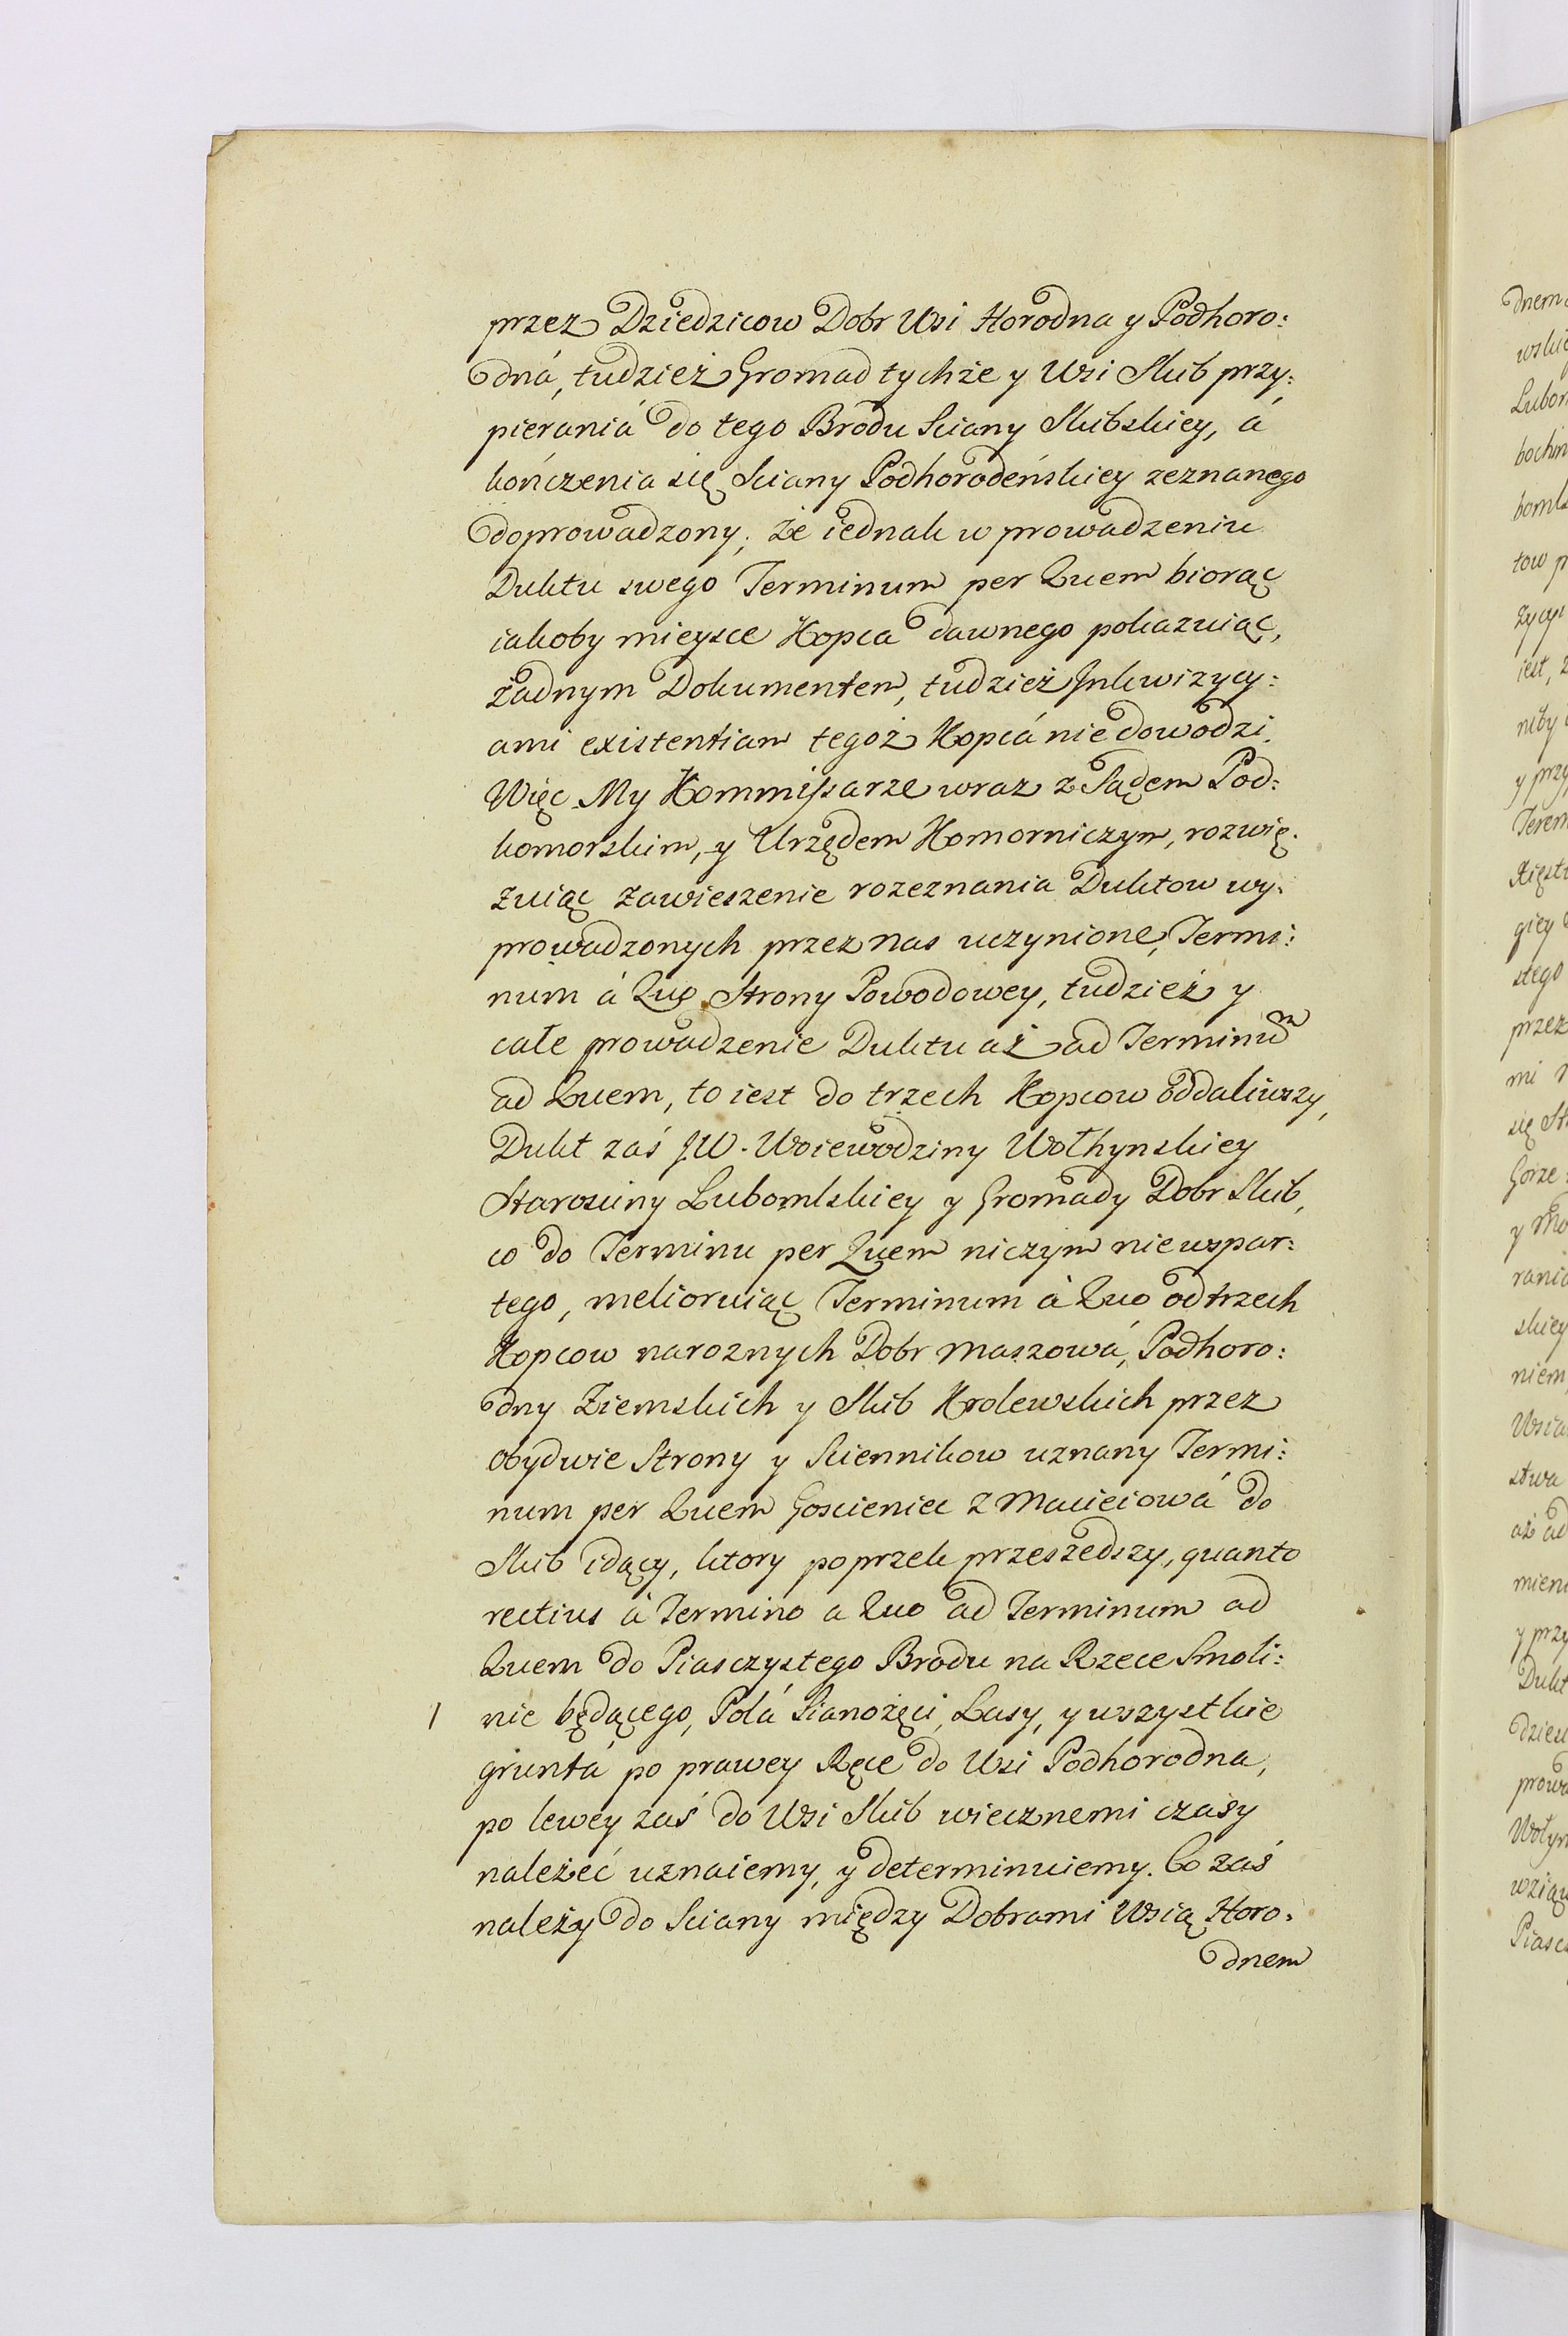 przez Dziedzicow Dobr Wsi Horodna y Podhoro:
dná, tudzież Gromad tychże y Wsi Skib przy:
pieraniá do tego Brodu Sciany Skibskiey, á
kończenia się Sciany Podhorodeńskiey zeznanego
doprowadzony; że iednak w prowadzeniu
Duktu swego Terminum per Quem biorąc
iakoby mieysce Kopca dawnego pokazuiąc,
żadnym Dokumentem, tudzież Inkwizycy:
ami existentiam tegoż Kopcá nie dowodzi.
Więc My Kommissarze wraz z Sądem Pod:
komorskim, y Urzędem Komorniczym, rozwię:
zuiąc zawieszenie rozeznania Duktow wy:
prowadzonych przez nas uczynione, Termi:
num á Quo Strony Powodowey, tudzież y
całe prowadzenie Duktu aż ad Terminum
ad Quem, to iest do trzech Kopcow oddaliwszy,
Dukt zaś JW. Woiewodziny Wołhynskiey
Starosciny Lubomlskiey y Gromady Dobr Skib,
co do Terminu per Quem niczym nie wspar:
tego, melioruiąc Terminum á Quo od trzech
Kopcow naroznych Dobr Maszowá, Podhoro:
dny Ziemskich y Skib Krolewskich przez
obydwie Strony y Sciennikow uznany Termi:
num per Quem Goscieniec z Macieiowá do
Skib idący, ktory poprzek przeszedszy, quanto
rectius á Termino a Quo ad Terminum ad
Quem do Piasczystego Brodu na Rzece Smoli:
1 nie będącego, Polá Sianożęci, Lasy, y wszystkie
gruntá po prawey Ręce do Wsi Podhorodna,
po lewey zaś do Wsi Skib wiecznemi czasy
należeć uznaiemy, y determinuiemy. Co zaś
należy do Sciany między Dobrami Wsią Horo:
dnem